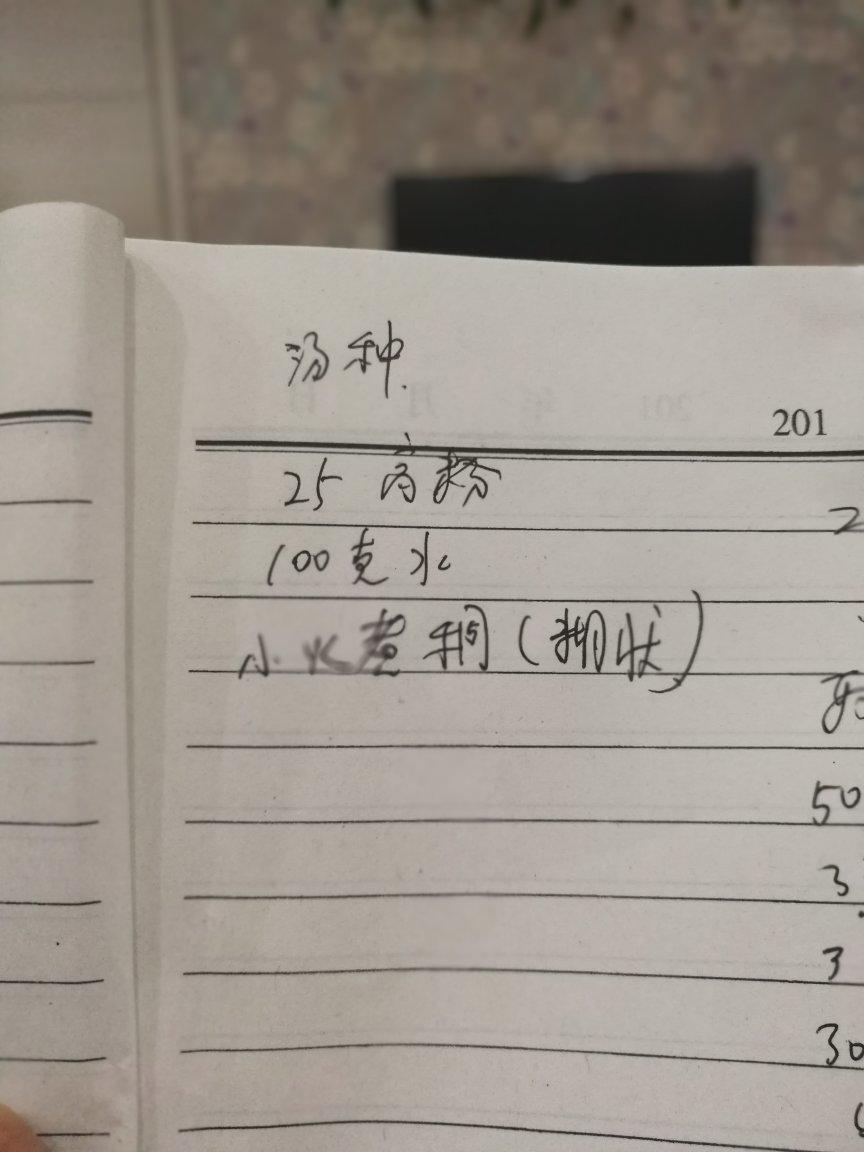 汤种
201
25 高粉
100克水
小火煮稠(糊状)
50
3
3
30